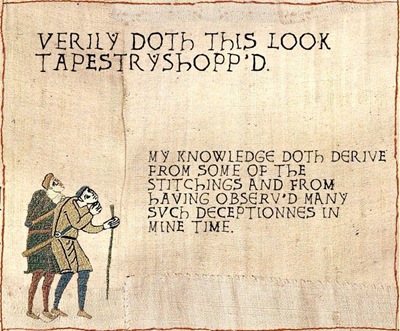 VERILY DOTH THIS LOOK
TAPESTRYSHOPP'D.
MY KNOWLEDGE DOTH DERIVE
FROM SOME OF THE
STITCHINGS AND FROM
HAVING OBSERV'D MANY
SUCH DECEPTIONNES IN
MINE TIME.